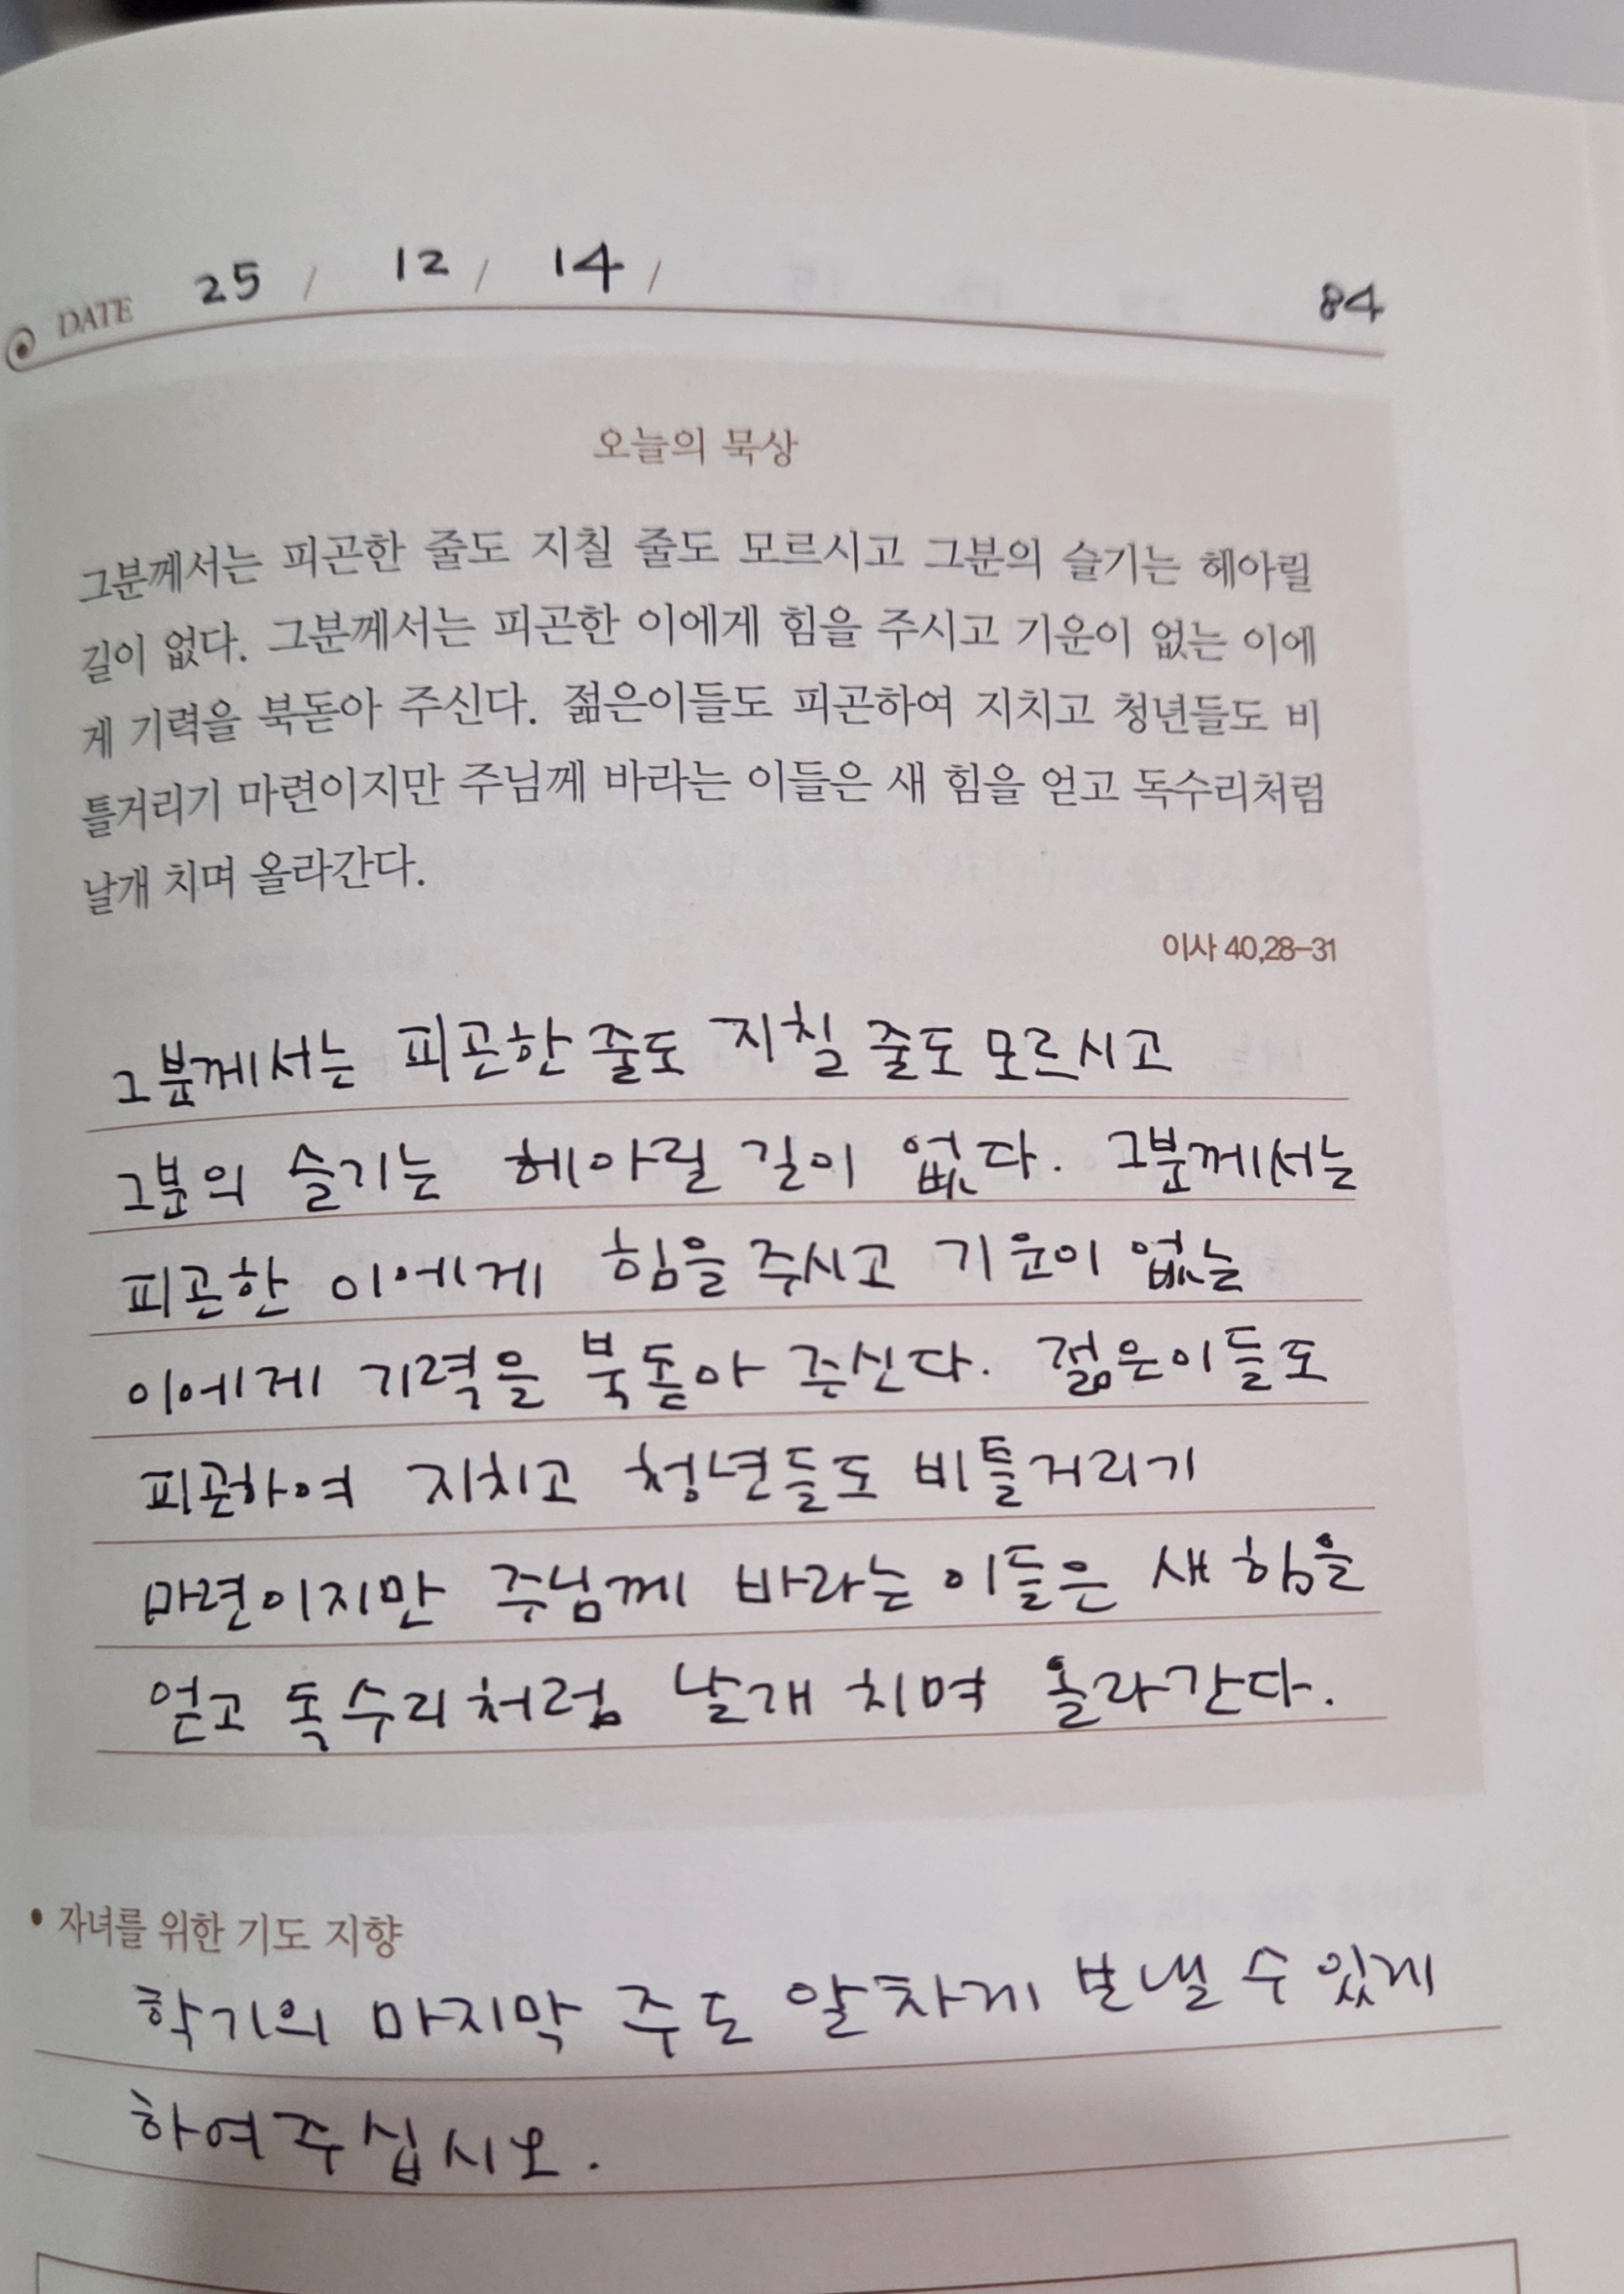 DATE 25 / 12 / 14 / 84
오늘의 묵상
그분께서는 피곤한 줄도 지칠 줄도 모르시고 그분의 슬기는 헤아릴
길이 없다. 그분께서는 피곤한 이에게 힘을 주시고 기운이 없는 이에
게 기력을 북돋아 주신다. 젊은이들도 피곤하여 지치고 청년들도 비
틀거리기 마련이지만 주님께 바라는 이들은 새 힘을 얻고 독수리처럼
날개 치며 올라간다.
이사 40,28-31
그분께서는 피곤한 줄도 지칠 줄도 모르시고
그분의 슬기는 헤아릴 길이 없다. 그분께서는
피곤한 이에게 힘을 주시고 기운이 없는
이에게 기력을 북돋아 주신다. 젊은이들도
피곤하여 지치고 청년들도 비틀거리기
마련이지만 주님께 바라는 이들은 새 힘을
얻고 독수리처럼 날개 치며 올라간다.
• 자녀를 위한 기도 지향
학기의 마지막 주도 알차게 보낼 수 있게
하여 주십시오.